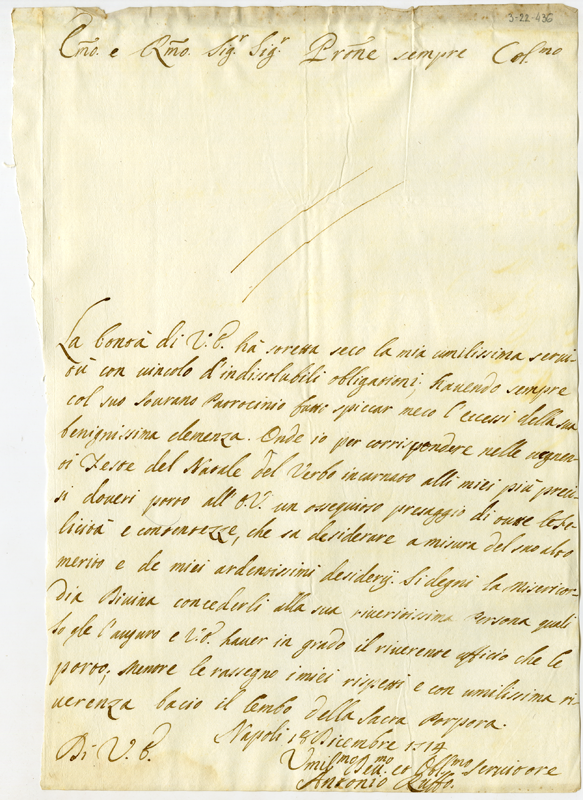 3-22-436
E͞mo. e R͞mo. Sig.r Sig.r Pro͞ne sempre Col.mo
La bontà di V.E. hà stretta seco la mia umilissima servi-
tù con vincolo d'indissolubili obligazioni, havendo sempre
col suo Sourano Patrocinio fatto spiccar meco l'eccessi della sua
benignissima clemenza. Onde io per corrispondere nelle vegnen-
ti Feste del Natale del Verbo incarnato alli miei più preci-
si doveri porto all'E.V. un ossequioso presaggio di tutte le fe-
licità e contentezze, che sa desiderare a misura del suo alto
merito e de miei ardentissimi desiderij. Si degni la Misericor-
dia Divina concederli alla sua riveritissima Persona quali
Io gle l'auguro e V.E. haver in grado il riverente ufficio che le
porto, mentre le rassegno i miei rispetti e con umilissima ri-
verenza bacio il lembo della Sacra Porpora.
Napoli 18 Dicembre 1714
Di V.E.
Umil.mo Dev.mo et Obl.mo Servitore
Antonio Ruffo.